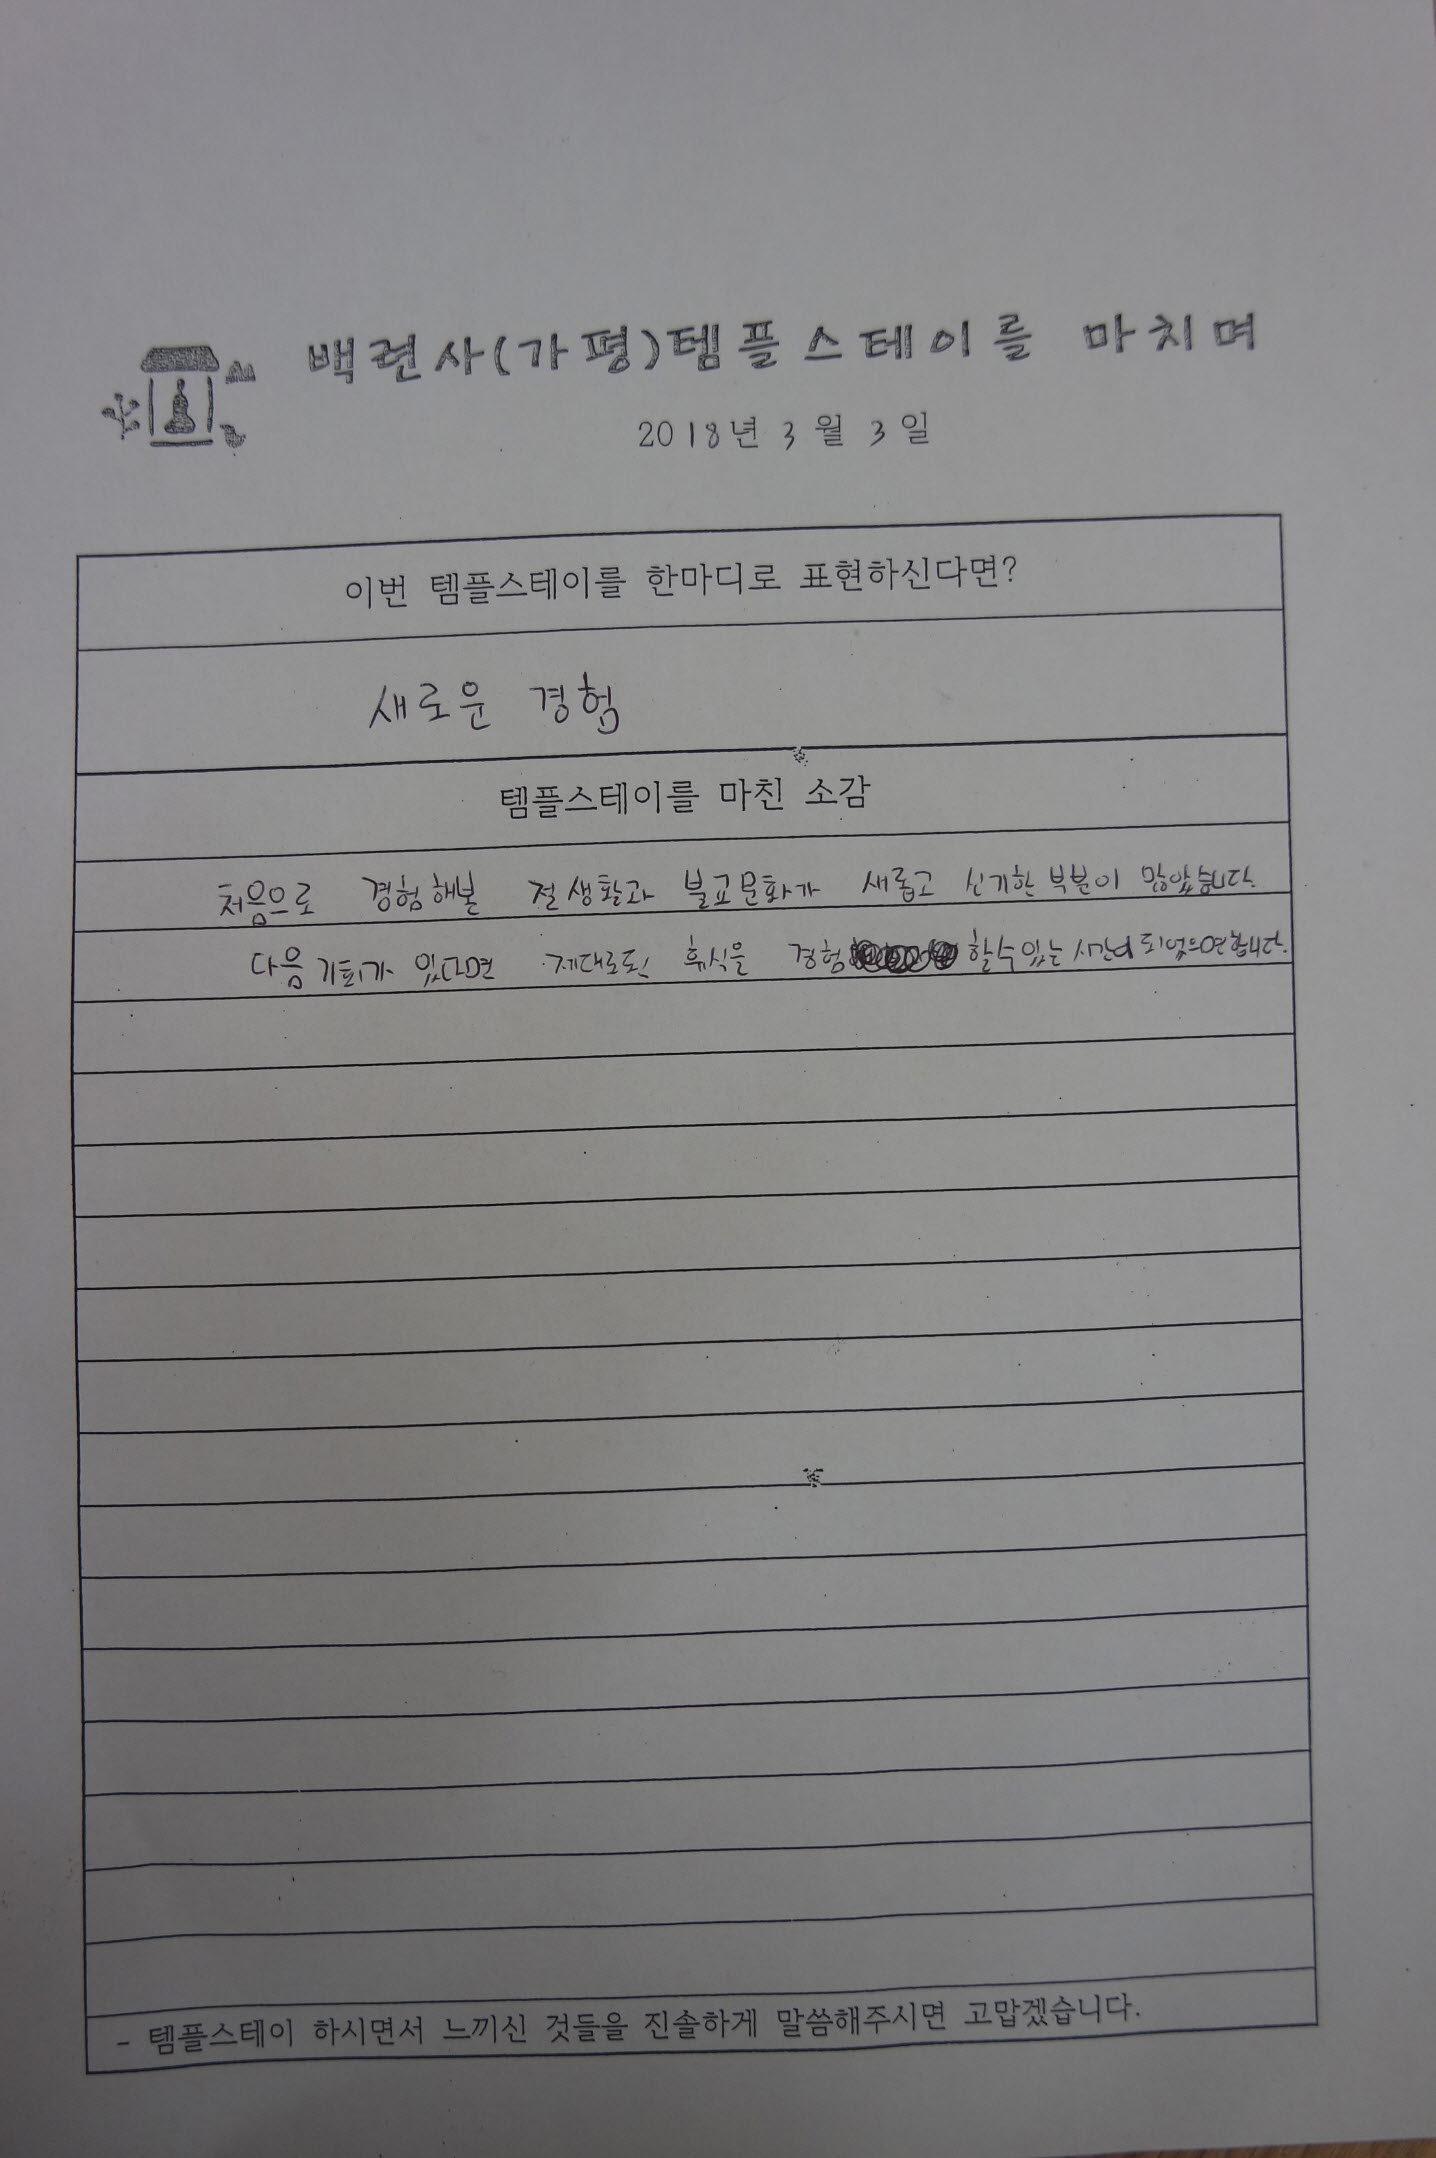 백련사(가평)템플스테이를 마치며
2018년 3월 3일
이번 템플스테이를 한마디로 표현하신다면?
새로운 경험
템플스테이를 마친 소감
처음으로 경험해본 절생활과 불교문화가 새롭고 신기한 부분이 많았습니다.
다음 기회가 있다면 제대로된 휴식을 경험 할수있는 시간이 되었으면합니다.
- 템플스테이 하시면서 느끼신 것들을 진솔하게 말씀해주시면 고맙겠습니다.